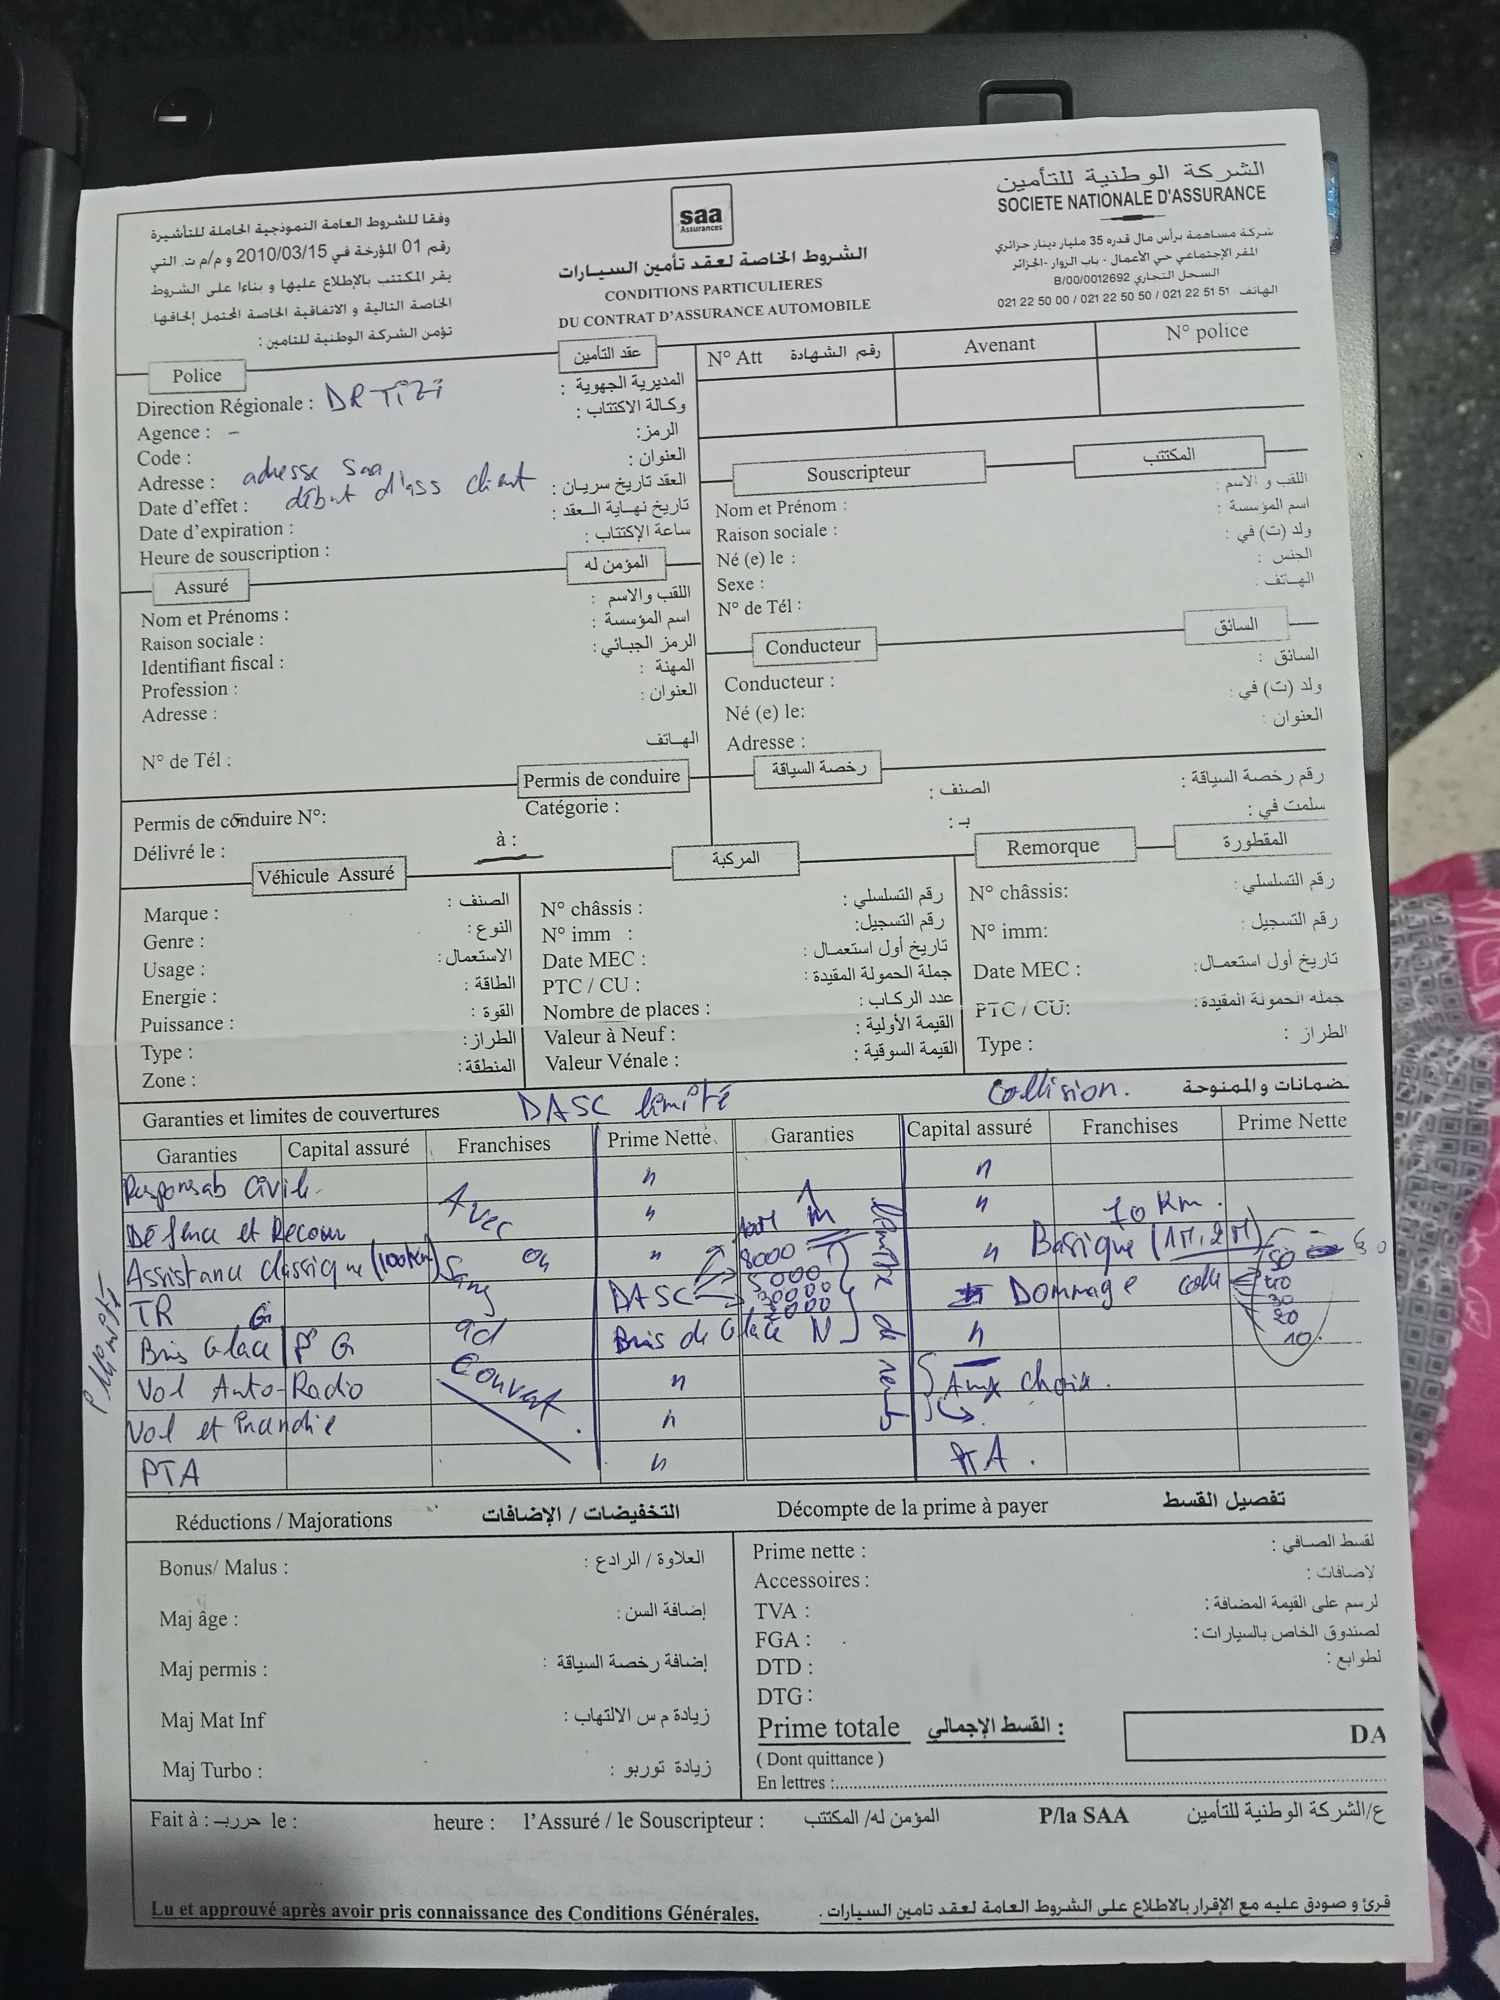 وفقا للشروط العامة النموذجية الحاملة للتأشيرة
رقم 01 المؤرخة في 2010/03/15 و م/م ت. التي
يقر المكتتب بالإطلاع عليها و بناءا على الشروط
الخاصة التالية و الاتفاقية الخاصة المحتمل إلحاقها.
تؤمن الشركة الوطنية للتامين :
saa
Assurances
الشروط الخاصة لعقد تأمين السيارات
CONDITIONS PARTICULIERES
DU CONTRAT D'ASSURANCE AUTOMOBILE
الشركة الوطنية للتأمين
SOCIETE NATIONALE D'ASSURANCE
شركة مساهمة برأس مال قدره 35 مليار دينار جزائري
المقر الإجتماعي حي الأعمال - باب الزوار -الجزائر
السجل التجاري B/00/0012692
الهاتف 021 22 50 00 / 021 22 50 50 / 021 22 51 51
Police عقد التأمين
Direction Régionale : DR Tizi المديرية الجهوية :
Agence : - وكالة الاكتتاب :
Code : الرمز:
Adresse : adresse saa العنوان :
Date d'effet : début d'ass client العقد تاريخ سريان :
Date d'expiration : تاريخ نهاية العقد :
Heure de souscription : ساعة الإكتتاب :
N° Att رقم الشهادة Avenant N° police
Souscripteur المكتتب
Nom et Prénom : اللقب و الاسم :
Raison sociale : اسم المؤسسة :
Né (e) le : ولد (ت) في :
Sexe : الجنس :
N° de Tél : الهاتف :
Assuré المؤمن له
Nom et Prénoms : اللقب والاسم :
Raison sociale : اسم المؤسسة :
Identifiant fiscal : الرمز الجبائي :
Profession : المهنة :
Adresse : العنوان :
N° de Tél : الهاتف
Conducteur السائق
Conducteur : السائق :
Né (e) le: ولد (ت) في :
Adresse : العنوان :
Permis de conduire رخصة السياقة
Permis de conduire N°: Catégorie : الصنف : رقم رخصة السياقة :
Délivré le : à : بـ : سلمت في :
Véhicule Assuré المركبة
Marque : الصنف :
Genre : النوع :
Usage : الاستعمال :
Energie : الطاقة :
Puissance : القوة :
Type : الطراز:
Zone : المنطقة:
N° châssis : رقم التسلسلي :
N° imm : رقم التسجيل:
Date MEC : تاريخ أول استعمال :
PTC / CU : جملة الحمولة المقيدة :
Nombre de places : عدد الركاب :
Valeur à Neuf : القيمة الأولية :
Valeur Vénale : القيمة السوقية :
Remorque المقطورة
N° châssis: رقم التسلسلي :
N° imm: رقم التسجيل :
Date MEC : تاريخ أول استعمال:
PTC / CU: جمله الحمولة المقيدة :
Type : الطراز :
Garanties et limites de couvertures DASC limité Collision. ضمانات والممنوحة
Garanties Capital assuré Franchises Prime Nette Garanties Capital assuré Franchises Prime Nette
Responsab Civile
Défence et Recour
Assistance classique (100km)
TR
Bris Glace P G
Vol Auto-Radio
Vol et incendie
PTA
Avec
ou
Sans
DASC
8000
5000
Bris de Glace N
70 Km.
Basique (1M, 2M)
Dommage coll
50
40
30
20
10
Aux choix.
PTA.
Réductions / Majorations التخفيضات / الإضافات
Bonus/ Malus : العلاوة / الرادع :
Maj âge : إضافة السن:
Maj permis : إضافة رخصة السياقة :
Maj Mat Inf زيادة م س الالتهاب :
Maj Turbo : زيادة توربو :
Décompte de la prime à payer تفصيل القسط
Prime nette : لقسط الصافي :
Accessoires : لإضافات :
TVA : لرسم على القيمة المضافة :
FGA : لصندوق الخاص بالسيارات :
DTD : لطوابع :
DTG :
Prime totale القسط الإجمالي : DA
( Dont quittance )
En lettres :
Fait à : حرر بـ le : heure : l'Assuré / le Souscripteur : المؤمن له/ المكتتب P/la SAA ع/الشركة الوطنية للتأمين
Lu et approuvé après avoir pris connaissance des Conditions Générales. قرئ و صودق عليه مع الإقرار بالاطلاع على الشروط العامة لعقد تامين السيارات .